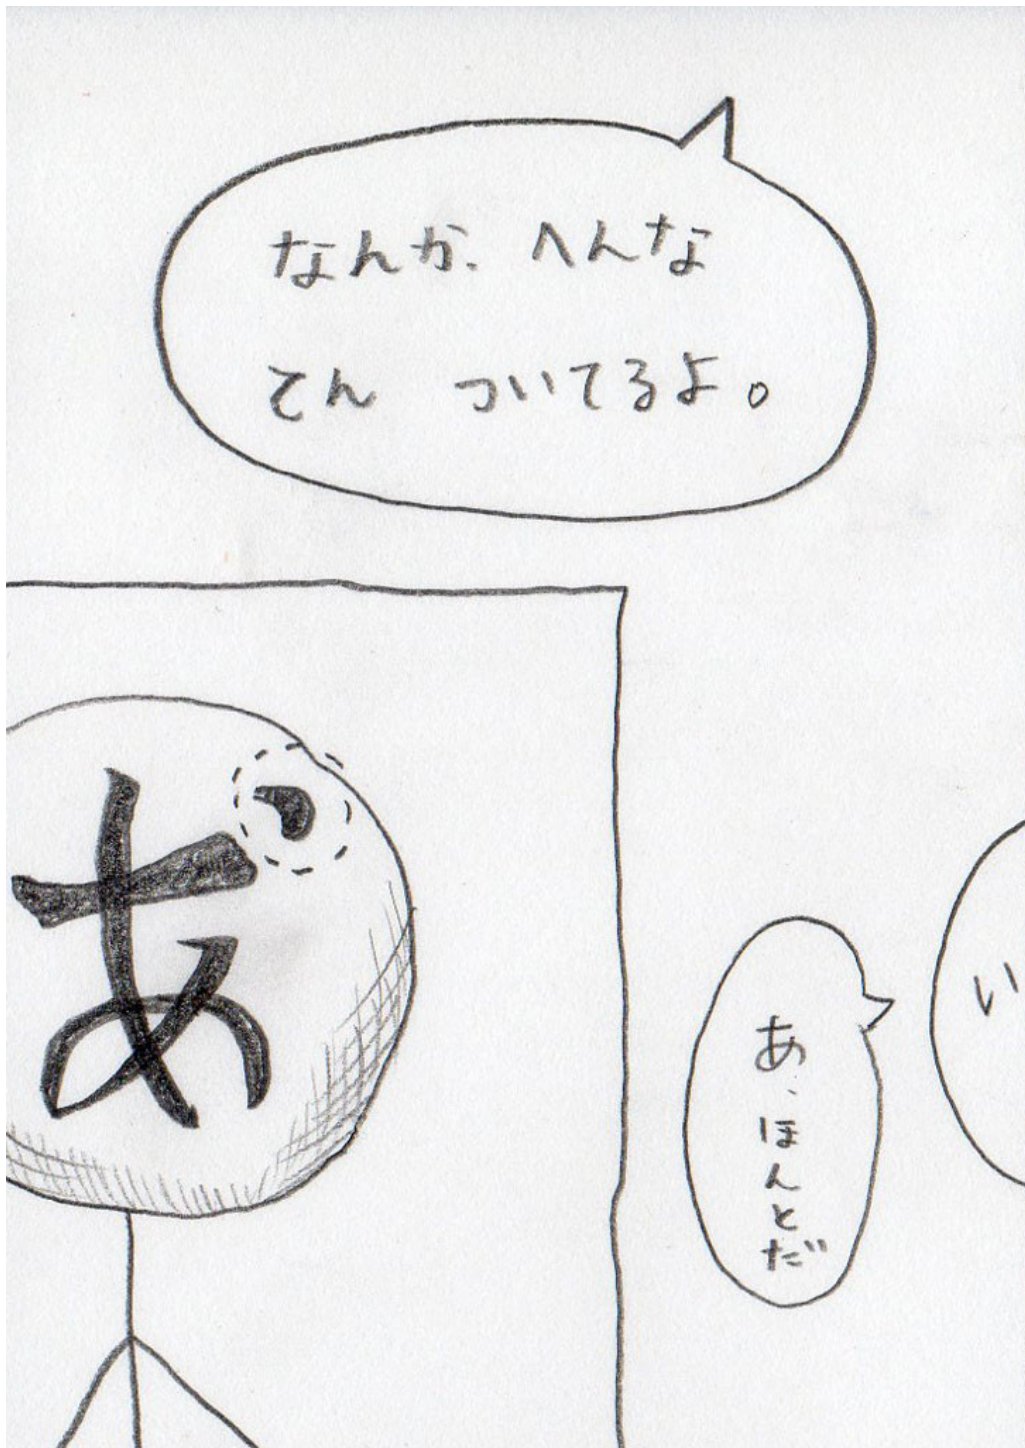 なんか、へんな
てん ついてるよ。
あ
い
あ、ほんとだ